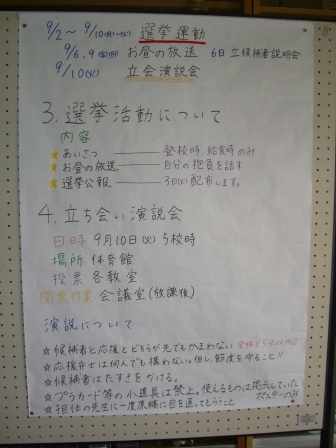 9/2～9/10(月)～(火) 選挙運動
9/6,9(金)(月) お昼の放送 6日 立候補者説明会
9/10(火) 立会演説会
3.選挙活動について
内容
★あいさつ ―― 登校時、給食時のみ
★お昼の放送 ―― 自分の抱負を話す
★選挙公報 ―― 3日(火)配布します。
4.立ち会い演説会
日時 9月10日(火) 5校時
場所 体育館
投票 各教室
開票作業 会議室(放課後)
演説について
☆候補者と応援とどちらが先でもかまわない
☆応援弁士は何人でも構わない。但し、節度を守ること!!
☆候補者はたすきをかける。
☆プラカード等の小道具は禁止。使えるものは掲示していた
ポスターのみ
☆担任の先生に一度原稿に目を通してもらうこと